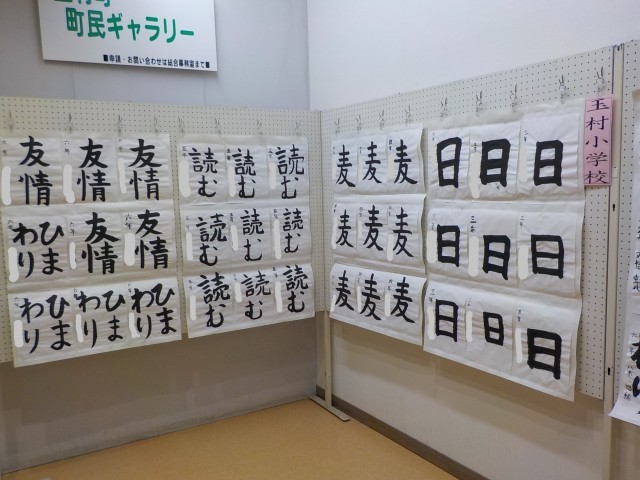 町民ギャラリー
■申請・お問い合わせは総合事務室まで■
玉村小学校
友情
友情
友情
ひまわり
友情
友情
ひまわり
ひまわり
ひまわり
読む
読む
読む
読む
読む
読む
読む
読む
読む
麦
麦
麦
麦
麦
麦
麦
麦
麦
日
日
日
日
日
日
日
日
日